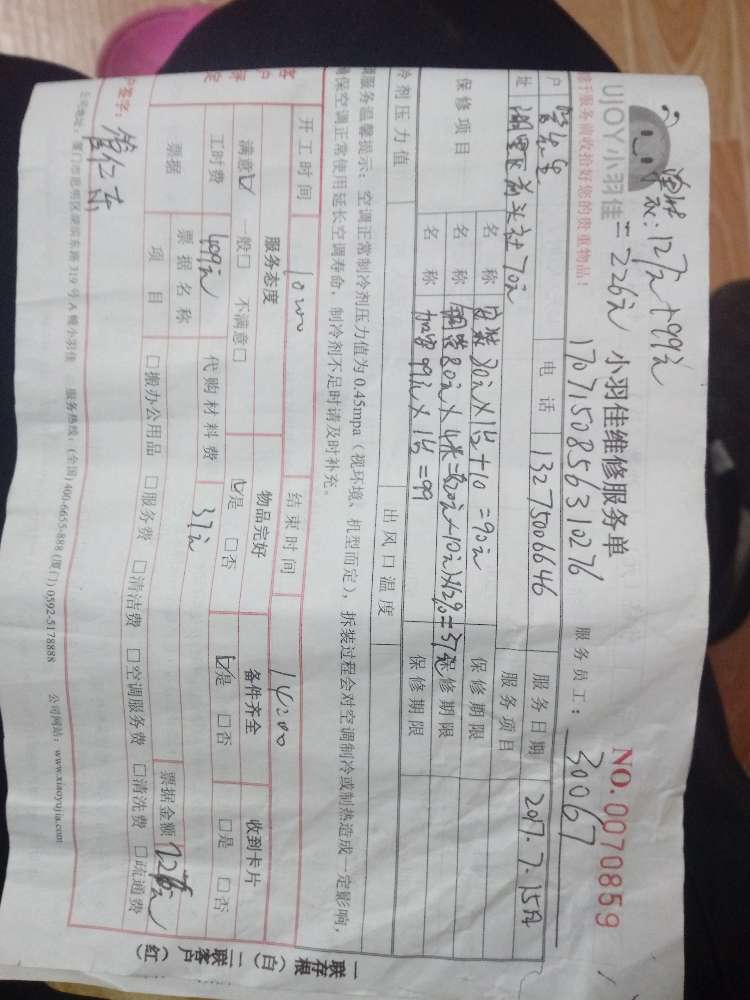 127元+99元
=226元
UJOY小羽佳
小羽佳维修服务单
NO. 0070859
1707150856310276
服务员工:
30067
请于服务前收拾好您的贵重物品!
户
电话
13275006646
服务日期
2017.7.15日
址
湖里区 前头社70
服务项目
保修项目
名称
安装80元×1台+10=90元
保修期限
名称
保修期限
名称
加氟99元×1台=99
保修期限
冷剂压力值
出风口温度
调服务温馨提示:空调正常制冷剂压力值为0.45mpa(视环境、机型而定),拆装过程会对空调制冷或制热造成一定影响,
确保空调正常使用延长空调寿命,制冷剂不足时请及时补充。
开工时间
10:00
结束时间
14:00
服务态度
物品完好
备件齐全
收到卡片
满意☑ 一般□ 不满意□
☑是 □否
☑是 □否
□是 □否
工时费
代购材料费
37元
票据
票据名称
票据金额
226元
项目
□搬办公用品 □服务费 □清洁费 □空调服务费 □清洗费 □疏通费
户签字:
公司地址:厦门市思明区湖滨东路319号A幢小羽佳 服务热线:(全国)400-6655-888 (厦门) 0592-5178888 公司网站:www.xiaoyujia.com
一联存根(白)二联客户(红)